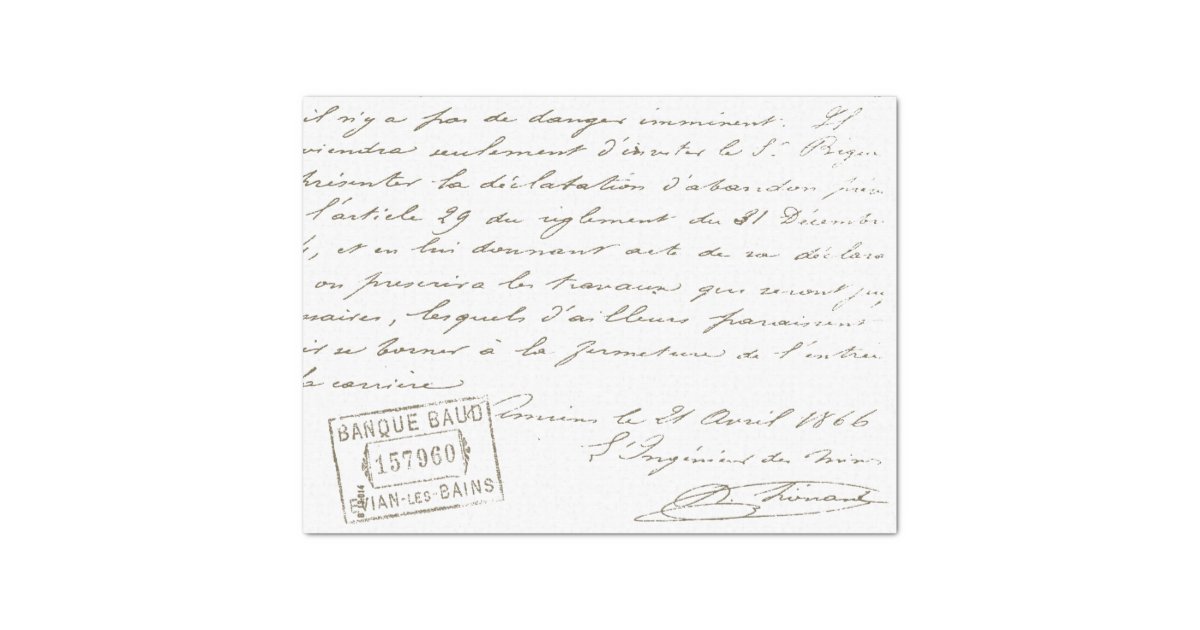 il n'y a pas de danger imminent. Il
viendra seulement d'inviter le Sr.
présenter la déclaration d'abandon
l'article 29 du règlement du 31 Décembr
, et en lui donnant acte de sa déclara
on prescrira les travaux qui seront
ssaires, lesquels d'ailleurs paraissent
ir se borner à la fermeture de l'entrée
la carrière
Amiens le 21 Avril 1866
L'Ingénieur des Mines
BANQUE BAUD
157960
EVIAN-LES-BAINS